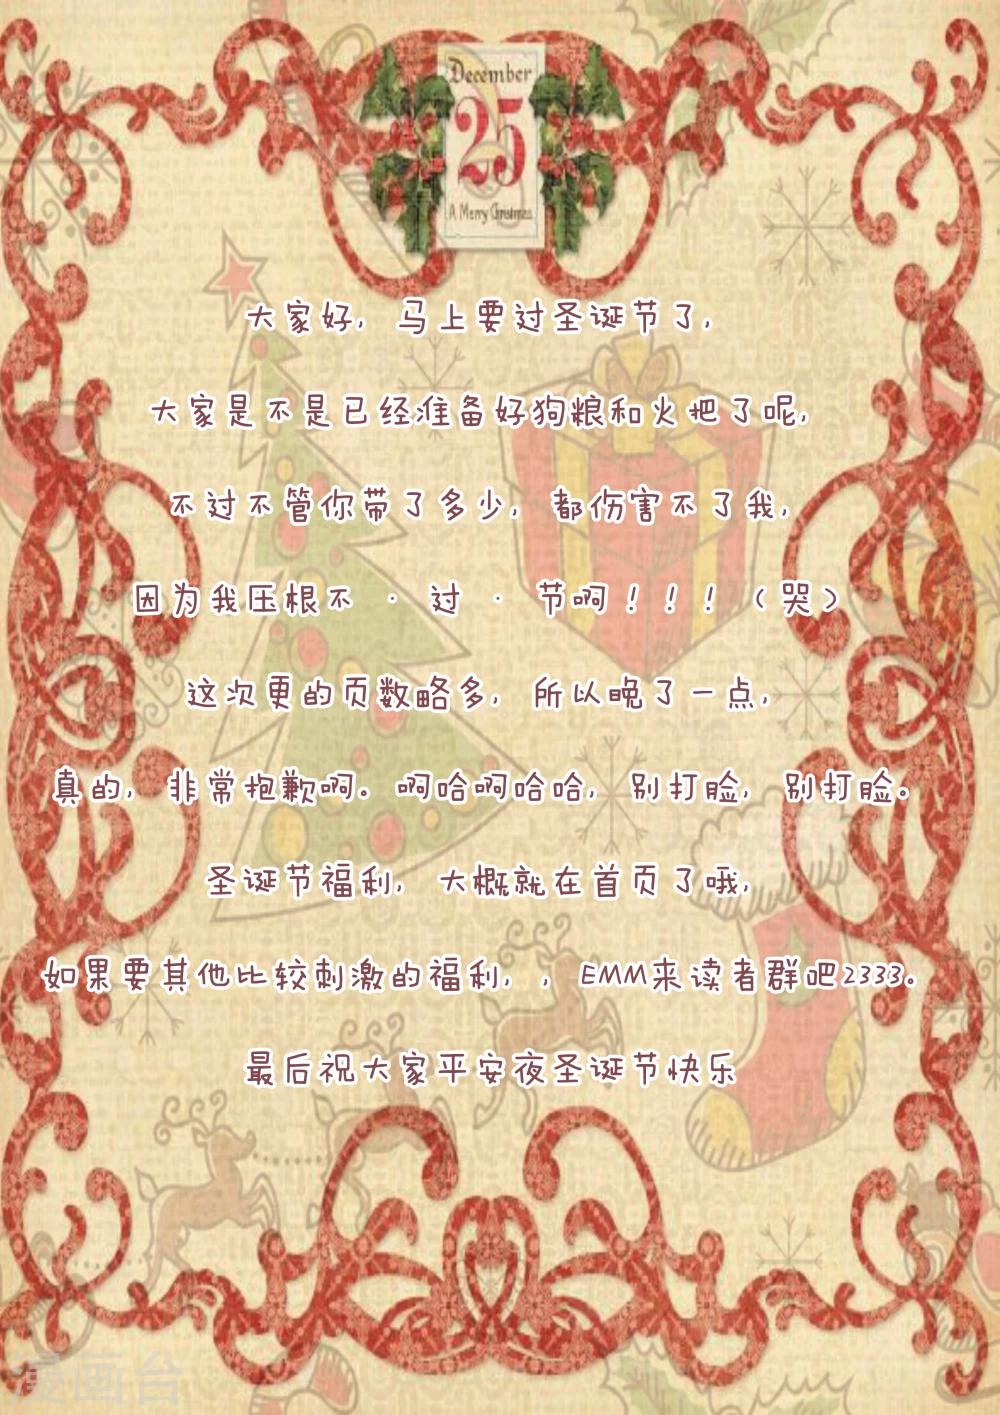 December
25
A Merry Christmas
大家好，马上要过圣诞节了，
大家是不是已经准备好狗粮和火把了呢，
不过不管你带了多少，都伤害不了我，
因为我压根不·过·节啊！！！（哭）
这次更的页数略多，所以晚了一点，
真的，非常抱歉啊。啊哈啊哈哈，别打脸，别打脸。
圣诞节福利，大概就在首页了哦，
如果要其他比较刺激的福利，，EMM来读者群吧2333。
最后祝大家平安夜圣诞节快乐
漫画台